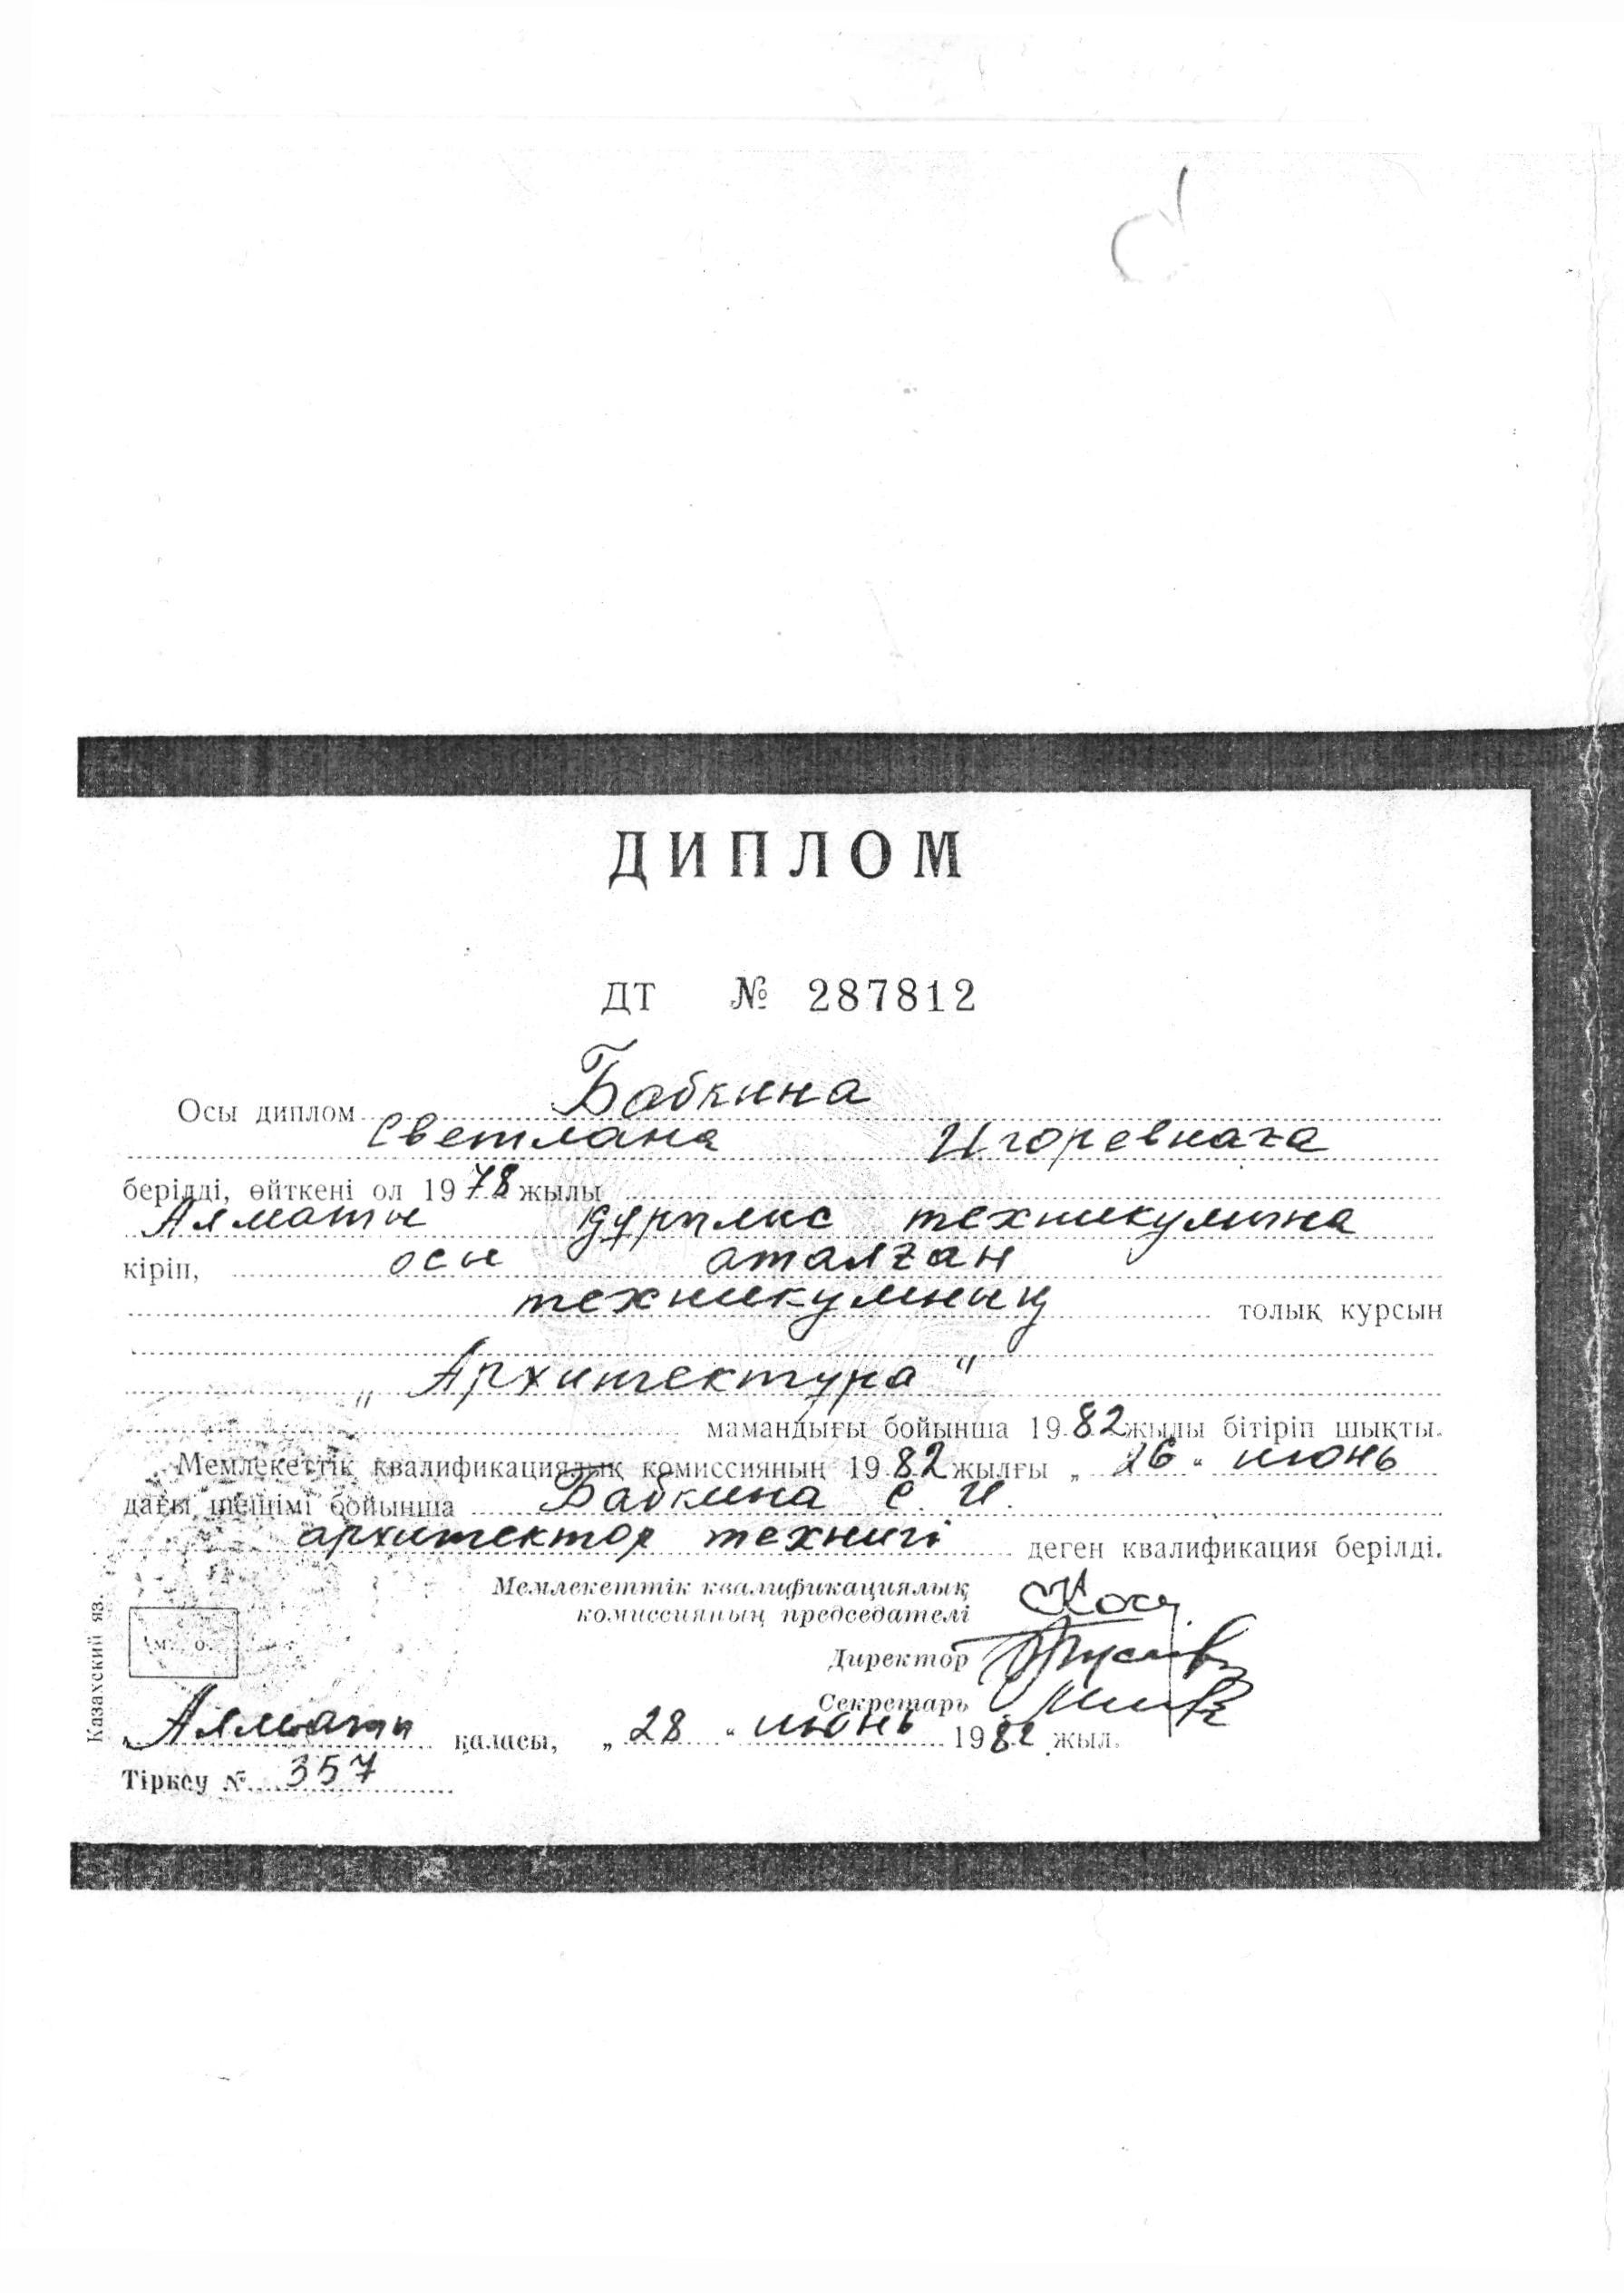 ДИПЛОМ
ДТ № 287812
Осы диплом Бабкина
Светлана Игоревнаға
берілді, өйткені ол 1978 жылы
Алматы құрылыс техникумына
кіріп, осы аталған
техникумның толық курсын
„Архитектура"
мамандығы бойынша 1982 жылы бітіріп шықты.
Мемлекеттік квалификациялық комиссияның 1982 жылғы „26" июнь
дағы шешімі бойынша Бабкина С. И.
архитектор технигі деген квалификация берілді.
Мемлекеттік квалификациялық
комиссияның председателі
Директор
Секретарь
м. о.
Казахский яз.
Алматы қаласы, „28" июнь 1982 жыл.
Тіркеу № 357